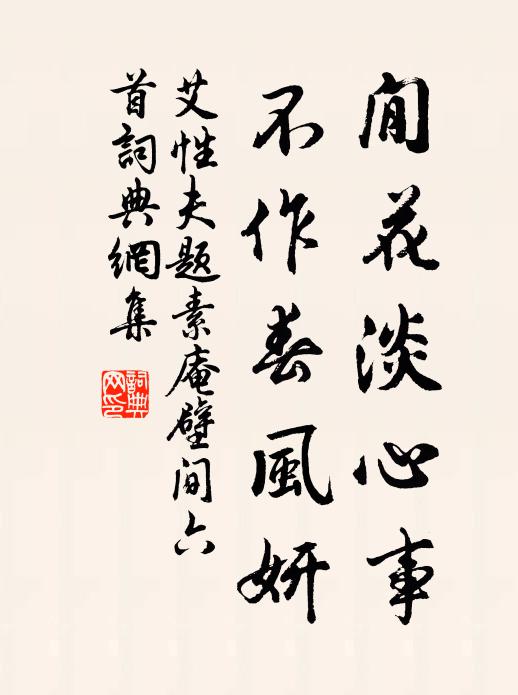 閒花淡心事
不作春風妍
艾性夫題素庵壁間六
首詞典網集
詞典
网印